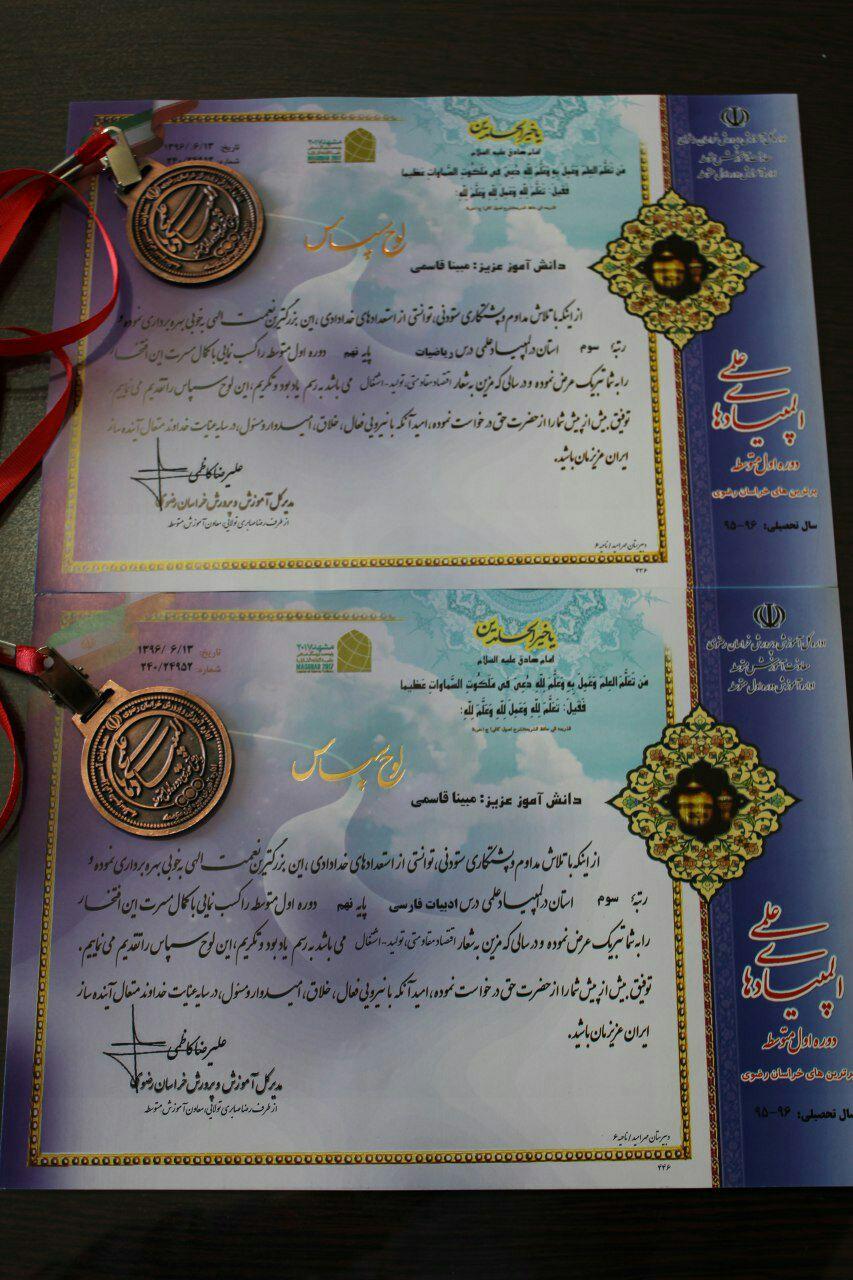 تاریخ: ۱۳۹۶/۰۶/۱۳
شماره:
مشهد ۲۰۱۷
MASHHAD 2017
یا خیر الحامدین
امام صادق علیه السلام
مَن تَعَلَّمَ العِلمَ وَعَمِلَ بِهِ وَعَلَّمَ لِلّهِ دُعِیَ فِی مَلَکوتِ السَّماواتِ عَظیما
فَقیلَ: تَعَلَّمَ لِلّهِ وَعَمِلَ لِلّهِ وَعَلَّمَ لِلّهِ:
لوح سپاس
دانش آموز عزیز: مبینا قاسمی
از اینکه با تلاش مداوم و پشتکاری ستودنی، توانستی از استعدادهای خدادادی، این بزرگترین نعمت الهی به خوبی بهره برداری نموده و
رتبهٔ سوم استان در المپیاد علمی درس ریاضیات پایه نهم دوره اول متوسطه را کسب نمایی با کمال مسرت این افتخار
را به شما تبریک عرض نموده و در سالی که مزین به شعار اقتصاد مقاومتی، تولید-اشتغال می باشد به رسم یادبود و تکریم، این لوح سپاس را تقدیم می نماییم.
توفیق بیش از پیش شما را از حضرت حق درخواست نموده، امید آنکه با نیرویی فعال، خلاق، امیدوار و مسئول، در سایه عنایت خداوند متعال آینده ساز
ایران عزیزمان باشید.
علیرضا کاظمی
مدیر کل آموزش و پرورش خراسان رضوی
از طرف رضا صابری تولایی، معاون آموزش متوسطه
دبیرستان مهر امید / ناحیه ۶
۴۳۶
اداره کل آموزش و پرورش خراسان رضوی
معاونت آموزش متوسطه
اداره آموزش دوره اول متوسطه
المپیادهای علمی
دوره اول متوسطه
برترین های خراسان رضوی
سال تحصیلی: ۹۶-۹۵
تاریخ: ۱۳۹۶/۰۶/۱۳
شماره: ۲۴۰/۲۴۹۵۲
مشهد ۲۰۱۷
MASHHAD 2017
یا خیر الحامدین
امام صادق علیه السلام
مَن تَعَلَّمَ العِلمَ وَعَمِلَ بِهِ وَعَلَّمَ لِلّهِ دُعِیَ فِی مَلَکوتِ السَّماواتِ عَظیما
فَقیلَ: تَعَلَّمَ لِلّهِ وَعَمِلَ لِلّهِ وَعَلَّمَ لِلّهِ:
لوح سپاس
دانش آموز عزیز: مبینا قاسمی
از اینکه با تلاش مداوم و پشتکاری ستودنی، توانستی از استعدادهای خدادادی، این بزرگترین نعمت الهی به خوبی بهره برداری نموده و
رتبهٔ سوم استان در المپیاد علمی درس ادبیات فارسی پایه نهم دوره اول متوسطه را کسب نمایی با کمال مسرت این افتخار
را به شما تبریک عرض نموده و در سالی که مزین به شعار اقتصاد مقاومتی، تولید-اشتغال می باشد به رسم یادبود و تکریم، این لوح سپاس را تقدیم می نماییم.
توفیق بیش از پیش شما را از حضرت حق درخواست نموده، امید آنکه با نیرویی فعال، خلاق، امیدوار و مسئول، در سایه عنایت خداوند متعال آینده ساز
ایران عزیزمان باشید.
علیرضا کاظمی
مدیر کل آموزش و پرورش خراسان رضوی
از طرف رضا صابری تولایی، معاون آموزش متوسطه
دبیرستان مهر امید / ناحیه ۶
۴۴۶
اداره کل آموزش و پرورش خراسان رضوی
معاونت آموزش متوسطه
اداره آموزش دوره اول متوسطه
المپیادهای علمی
دوره اول متوسطه
برترین های خراسان رضوی
سال تحصیلی: ۹۶-۹۵